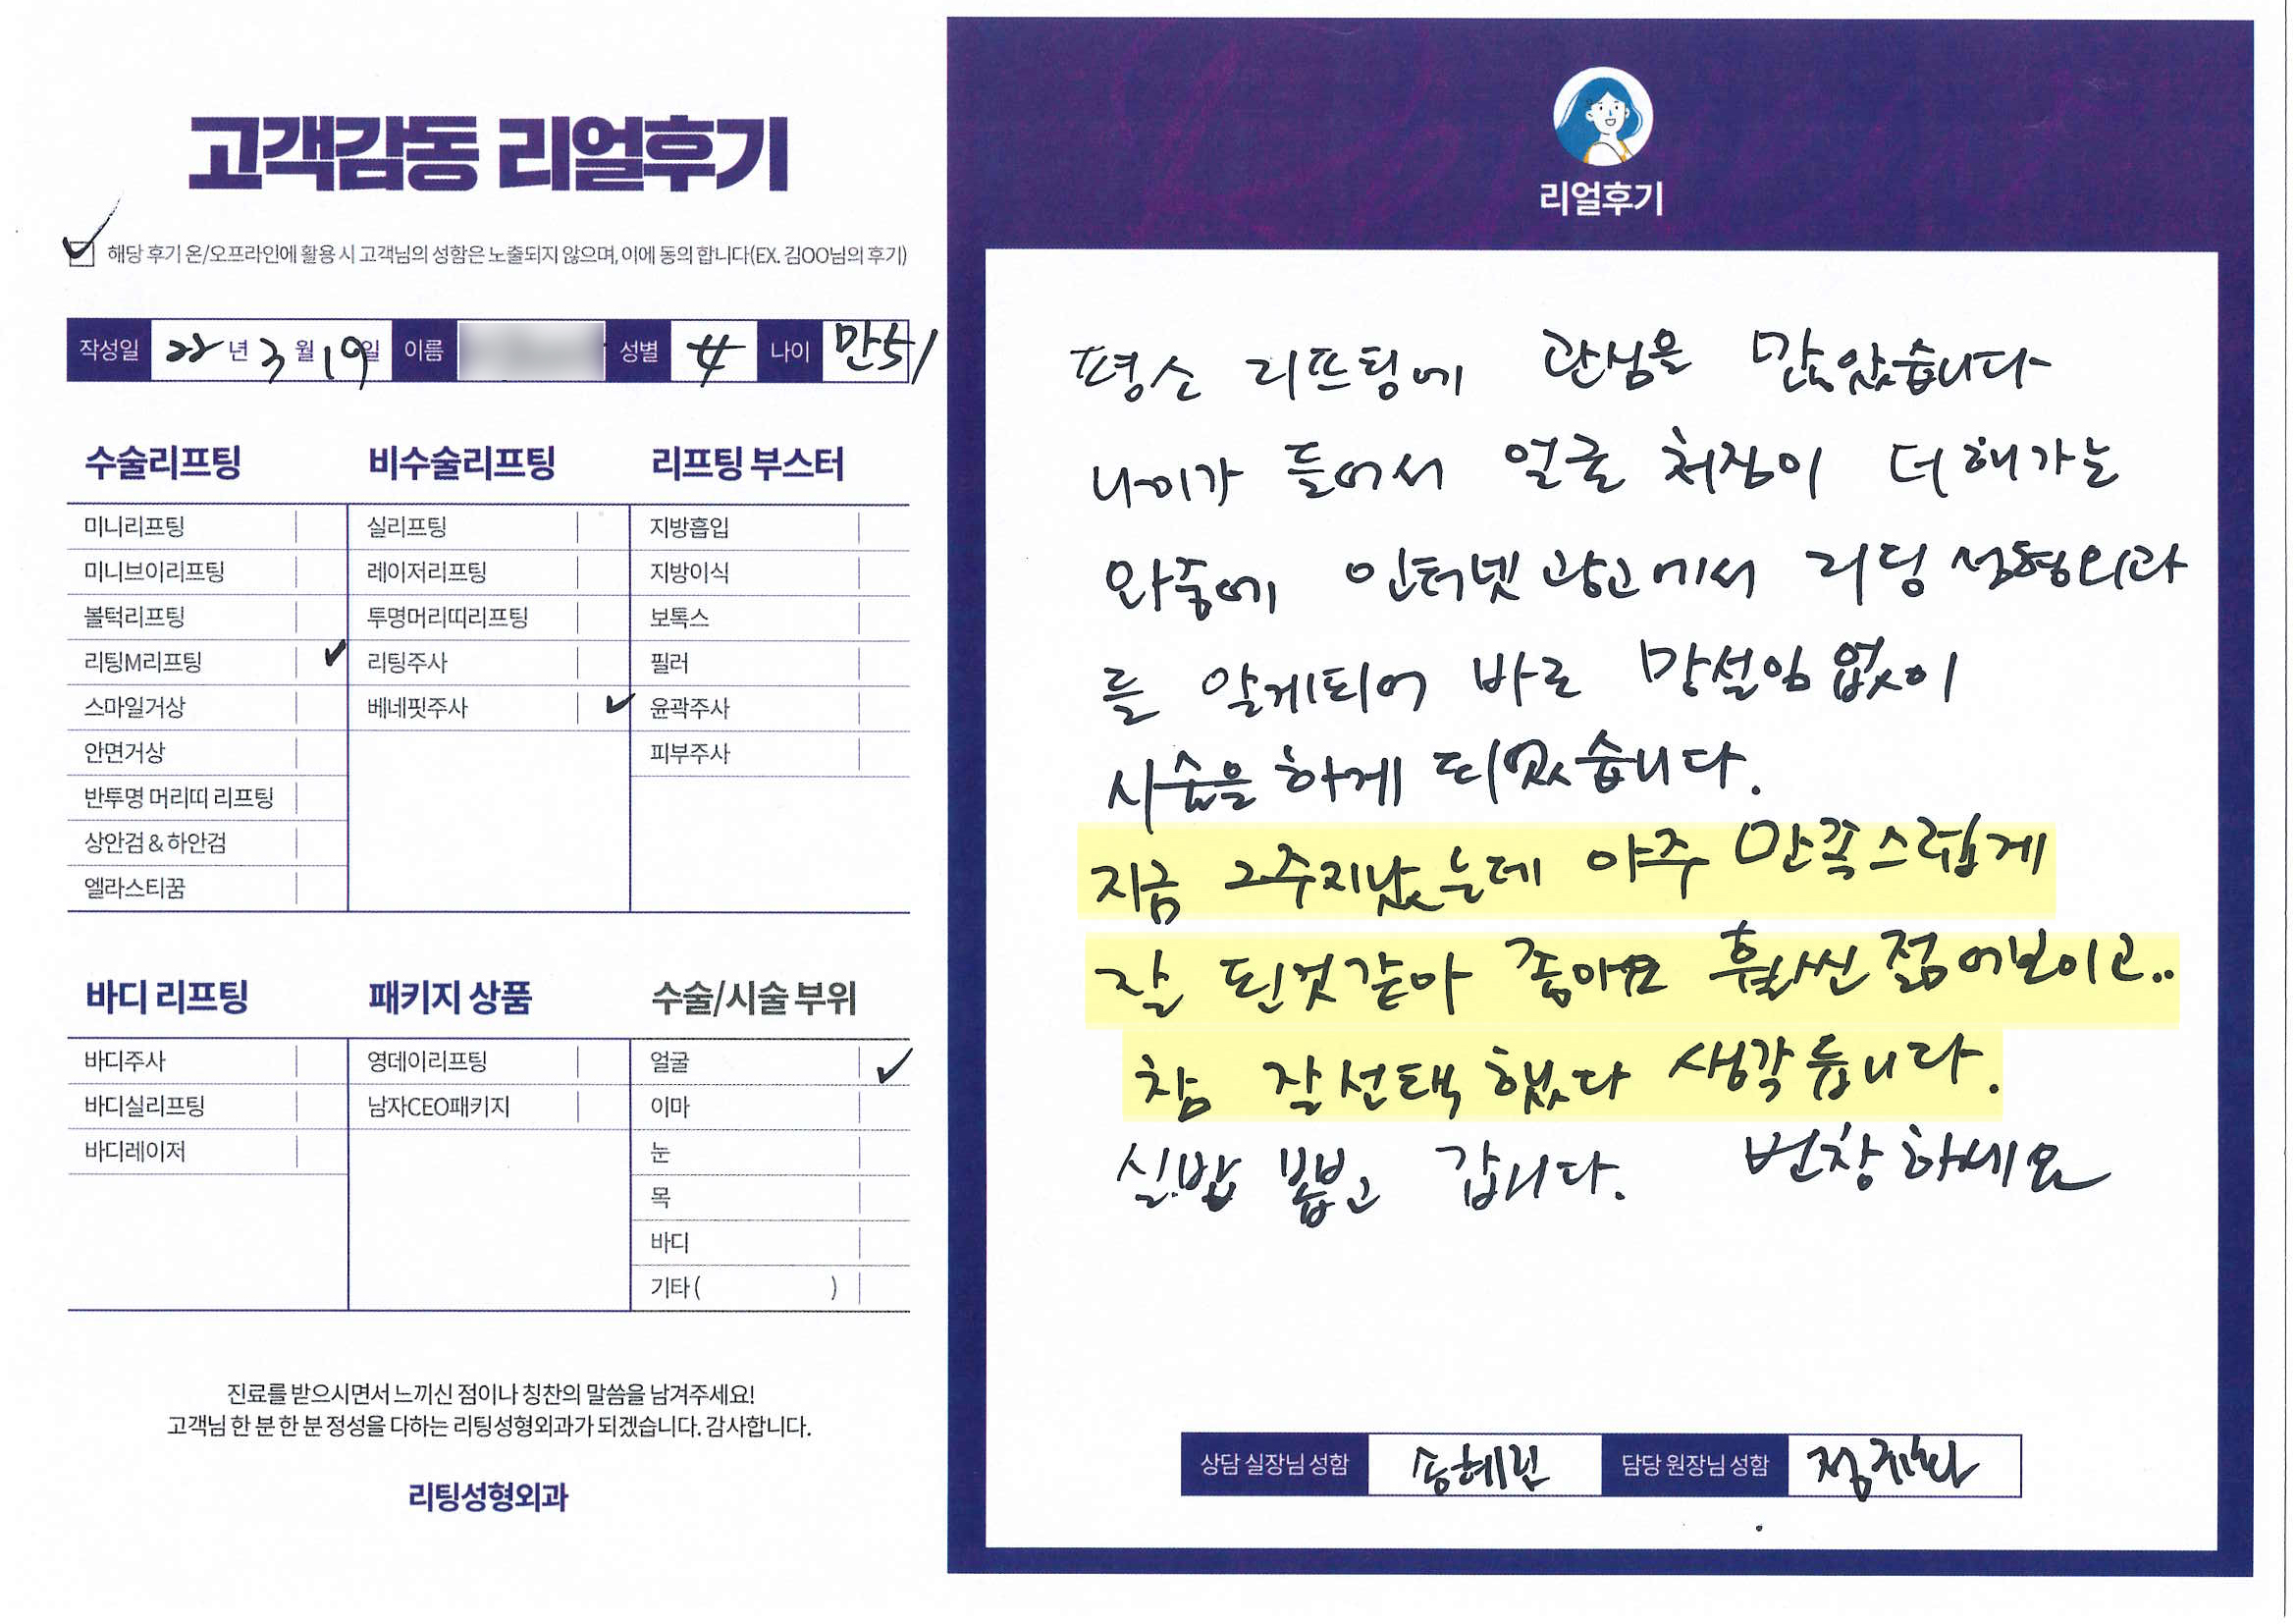 고객감동 리얼후기
해당 후기 온/오프라인에 활용 시 고객님의 성함은 노출되지 않으며, 이에 동의 합니다(EX. 김OO님의 후기)
작성일 22년 3월 19일 이름 성별 女 나이 만51
수술리프팅
미니리프팅
미니브이리프팅
볼턱리프팅
리팅M리프팅 ✓
스마일거상
안면거상
반투명 머리띠 리프팅
상안검 & 하안검
엘라스티꿈
비수술리프팅
실리프팅
레이저리프팅
투명머리띠리프팅
리팅주사
베네핏주사 ✓
리프팅 부스터
지방흡입
지방이식
보톡스
필러
윤곽주사
피부주사
바디 리프팅
바디주사
바디실리프팅
바디레이저
패키지 상품
영데이리프팅
남자CEO패키지
수술/시술 부위
얼굴 ✓
이마
눈
목
바디
기타 ( )
진료를 받으시면서 느끼신 점이나 칭찬의 말씀을 남겨주세요!
고객님 한 분 한 분 정성을 다하는 리팅성형외과가 되겠습니다. 감사합니다.
리팅성형외과
리얼후기
평소 리프팅에 관심을 많았습니다
나이가 들어서 얼굴 처짐이 더해가는
와중에 인터넷 광고에서 리딩성형외과
를 알게되어 바로 망설임 없이
시술을 하게 되었습니다.
지금 2주지났는데 아주 만족스럽게
잘 된것같아 좋아요 훨씬 젊어보이고..
참 잘 선택했다 생각듭니다.
실밥 뽑고 갑니다. 번창하세요
상담 실장님 성함 송혜린 담당 원장님 성함